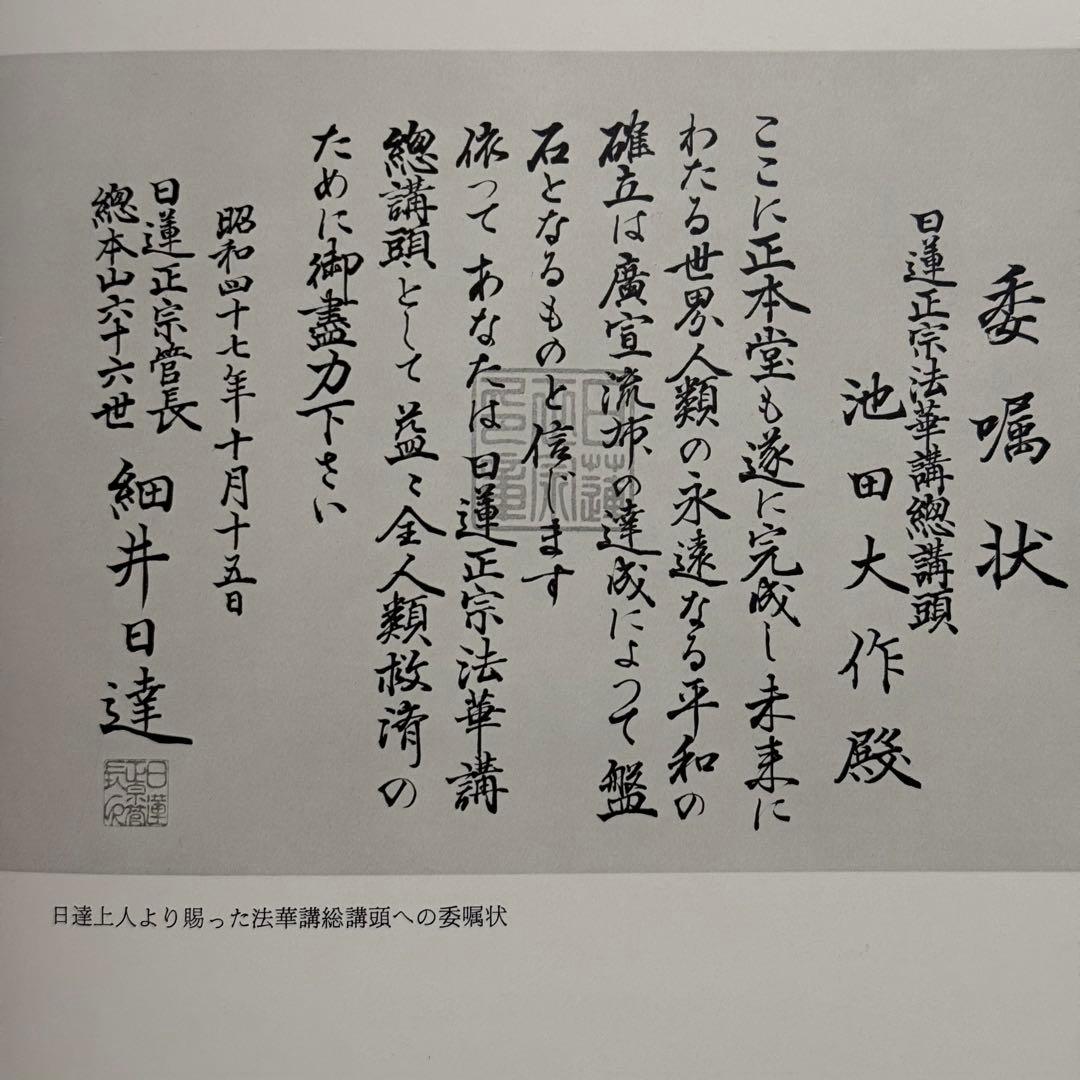 委嘱状
日蓮正宗法華講總講頭
池田大作殿
ここに正本堂も遂に完成し未来に
わたる世界人類の永遠なる平和の
確立は廣宣流布の達成によって盤
石となるものと信じます
依って あなたは日蓮正宗法華講
總講頭として益々全人類救済の
ために御盡力下さい
昭和四十七年十月十五日
日蓮正宗管長
總本山六十六世 細井日達
日達上人より賜った法華講総講頭への委嘱状